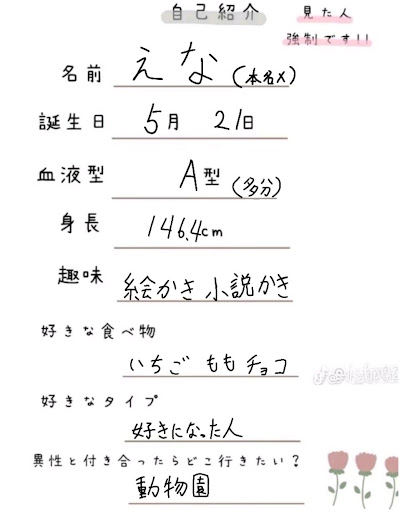 自己紹介
見た人
強制です!!
名前 えな(本名×)
誕生日 5月 21日
血液型 A型(多分)
身長 146.4cm
趣味 絵かき 小説かき
好きな食べ物
いちご もも チョコ
好きなタイプ
好きになった人
異性と付き合ったらどこ行きたい?
動物園